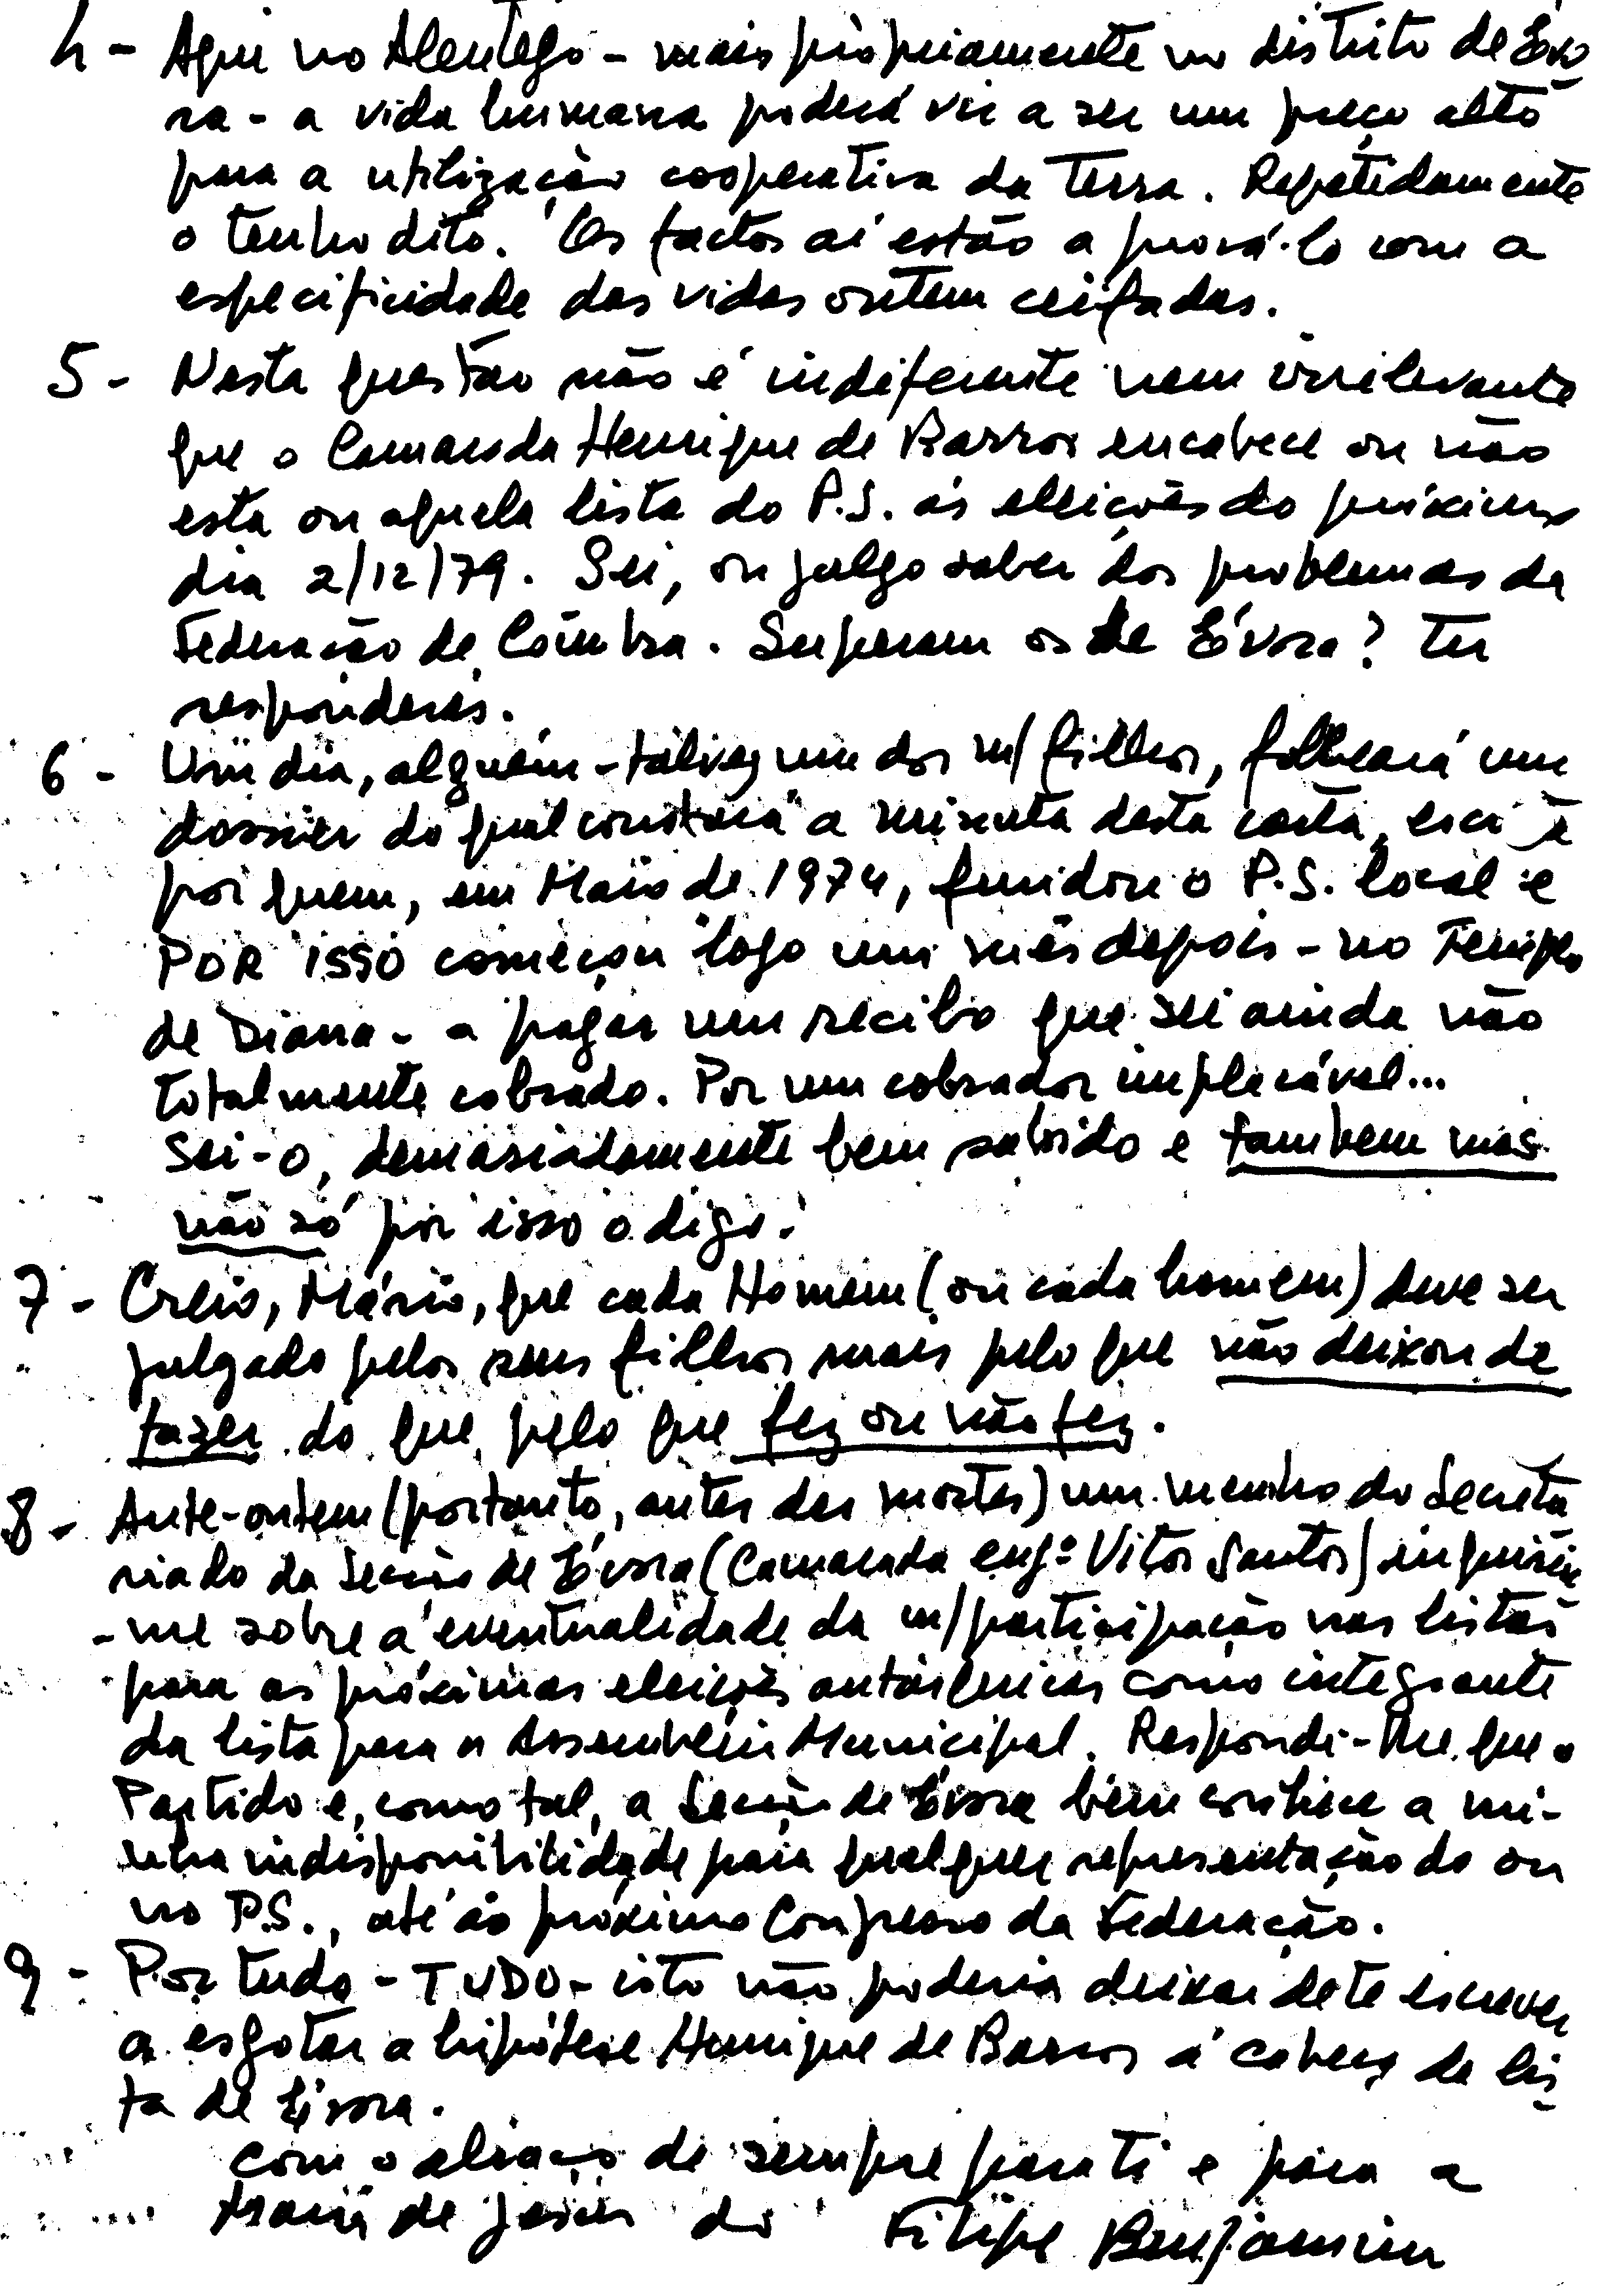 4 - Aqui no Alentejo - mais propriamente no distrito de Évo
ra - a vida humana poderá vir a ser um preço alto
para a utilização cooperativa da Terra. Repetidamente
o tenho dito. Os factos aí estão a prová-lo com a
especificidade das vidas ontem ceifadas.
5 - Nesta questão não é indiferente nem irrelevante
que o Camarada Henrique de Barros encabece ou não
esta ou aquela lista do P.S. ás eleições do próximo
dia 2/12/79. Sei, ou julgo saber dos problemas da
Federação de Coimbra. Superam os de Évora? Tu
responderás.
6 - Um dia, alguém - talvez um dos m/ filhos, folheará um
dossier do qual constará a minuta desta carta,
por quem, em Maio de 1974, fundou o P.S. local e
POR ISSO começou logo um mês depois - no Templo
de Diana - a pagar um recibo que sei ainda não
totalmente cobrado. Por um cobrador implacável...
Sei-o, demasiadamente bem sabido e tambem mas
não só por isso o digo.
7 - Creio, Mário, que cada Homem (ou cada homem) deve ser
julgado pelos seus filhos mais pelo que não deixou de
fazer do que pelo que fez ou não fez.
8 - Ante-ontem (portanto, antes das mortes) um membro do Secreta
riado da Secção de Évora (Camarada engº Vitor Santos) inquiriu
-me sobre a eventualidade da m/ participação nas listas
para as próximas eleições autárquicas como integrante
da lista para a Assembleia Municipal. Respondi-lhe que o
Partido e, como tal, a Secção de Évora bem conhece a mi-
nha indisponibilidade para qualquer representação do ou
no P.S., até ao próximo Congresso da Federação.
9 - Por tudo - TUDO - isto não poderia deixar de te escrever
a esgotar a hipótese Henrique de Barros á cabeça da lis
ta de Évora.
com o abraço de sempre para ti e para a
Maria de Jesus do Filipe Benjamim